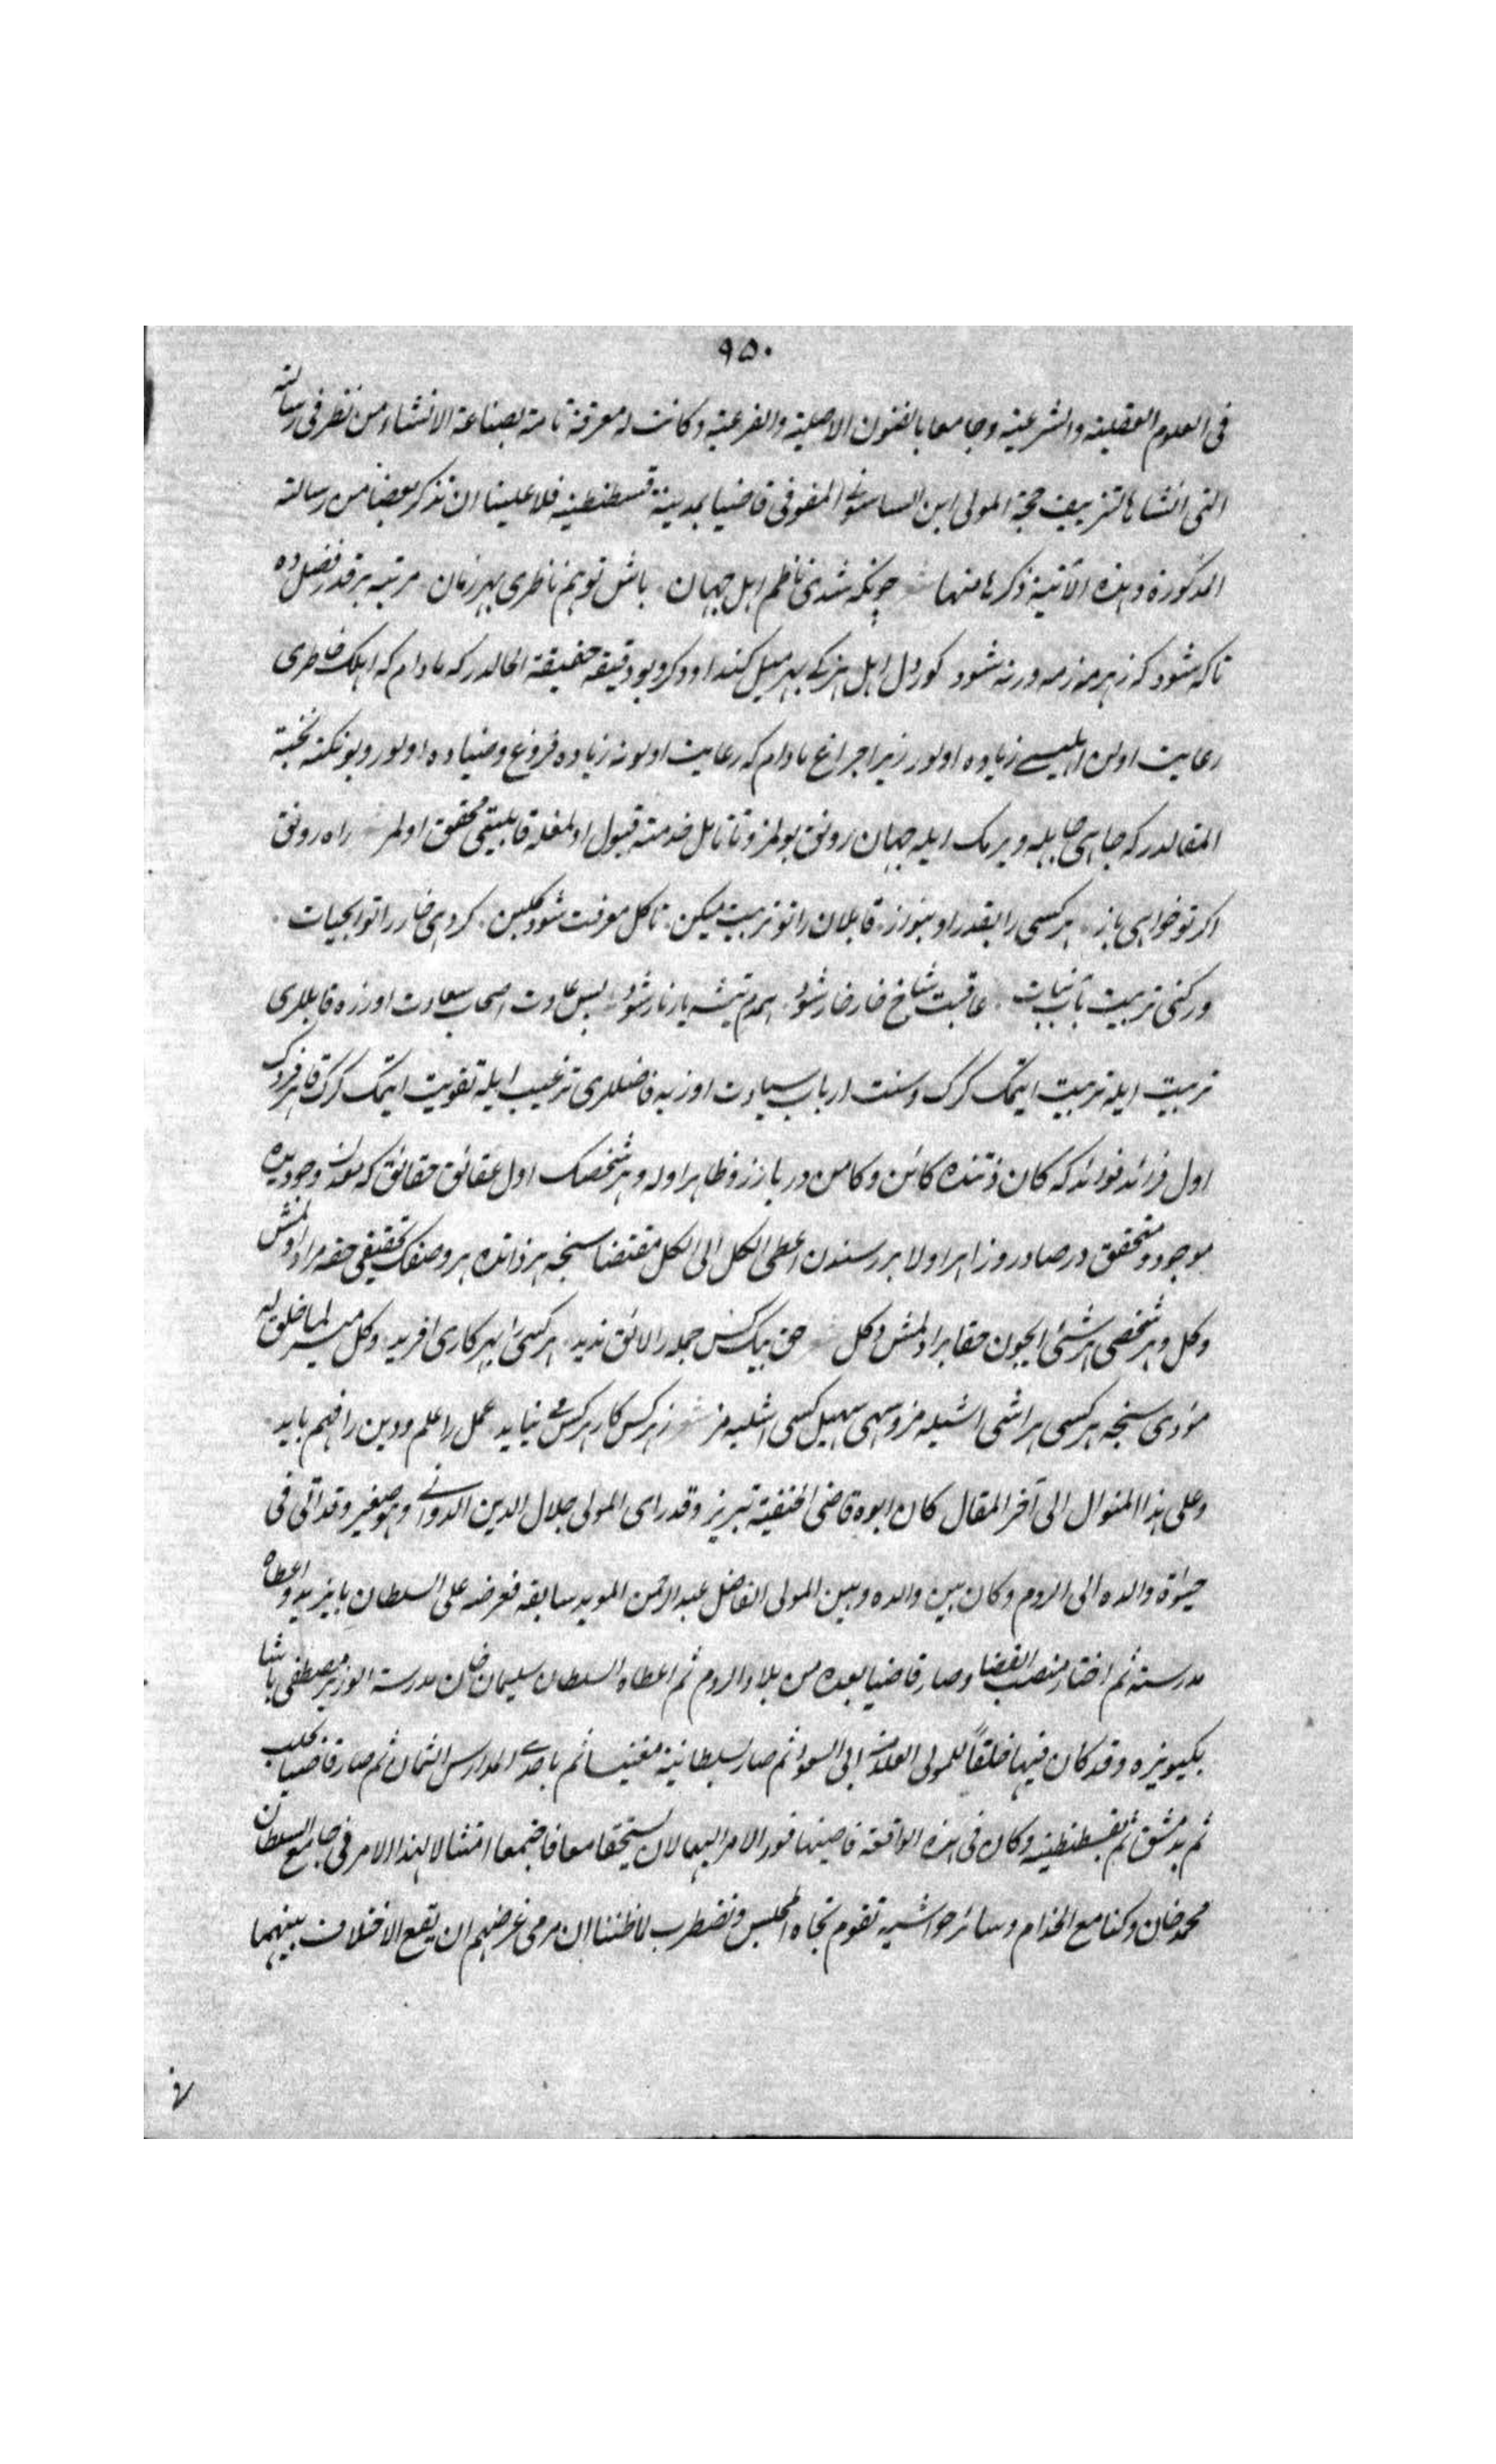 ٩٥٠
فى العلوم العقلية والشرعية وجامعا بالفنون الاصلية والفرعية وكانت له معرفة تامة بصناعة الانشاء من نظر فى رسالته
التى انشاها لتزييف حجة المولى ابن الساسونى المفوفى قاضيا بمدينة قسطنطينية فلا علينا ان نذكر بعضا من رسالته
المذكورة وهذه الآتية ذكرها منها چونكه شدى ناظم اهل جهان باش تو هم ناظرى بهر زمان مرتبه بر قدر فضل ده
تاكه شود كه ز هرمه زمه ورنه شود كور دل اهل هنر كى بهر ميل كند او وكرو بو دقيقه حقيقة الحالدر كه مادام كه اهلك خاطرى
رعايت اولن اهليسى زياده اولور زيرا چراغ مادام كه رعايت اولونه زياده فروغ وضياده اولور وبو نكته نخبة
المقالدر كه جاهى جاهله ويرمك ايله جهان رونق بولمز وتا نااهل خدمته قبول اولمغله قابليتى محقق اولمز راه رونق
اكر تو خواهى باز هر كسى را بقدر او بنواز قابلان را تو تربيت ميكن تا كل معرفت شود كلبن كر دهى خار را تو آبحيات
ور كنى تربيت بآب نبات عاقبت شاخ خار خار شود همدم تيشه يار نار شود پس عادت اصحاب سعادت اوزره قابللرى
تربيت ايله تربيت ايتمك كرك وسنت ارباب سيادت اوزره فاضللرى ترغيب ايله تقويت ايتمك كرك تا هر فردك
اول فرائد فوائد كه كان ذتنده كائن وكامن در بارز وظاهر اوله وهر شخصك اول عقائق حقائق كه معدن وجودينده
موجود ومتحقق در صادر وزاهر اولا بر رسندن اعطى الكل الى الكل مقتضاسنجه هر ذاتده بر وصفك تحقيقى حقه مراد اولمش
وكل وهر شخصى هر شئ ايچون حقا براد لمش دكل حق بيك كس جمله را لائق نديد هر كسى را بهر كارى آفريد وكل ميسر لما خلق له
مؤدى سنجه هر كسى هر اشى اشليه مز وسهى سهيل كسى اشليه مز ز هر كس كار هر كس نيايد عمل را علم ودين را فهم بايد
وعلى هذا المنوال الى آخر المقال كان ابوه قاضى الحنفية بتبريز وقد راى المولى جلال الدين الدوانى وهو صغير وقد اتى فى
حيوة والده الى الروم وكان بين والده وبين المولى الفاضل عبد الرحمن المؤيد سابقه فعرضه على السلطان بايزيد واعطاه
مدرسته ثم اختار منصب القضا وصار قاضيا بعده من بلاد الروم ثم اعطاه السلطان سليمان خان مدرسة الوزير مصطفى پاشا
بكيبويزه وقد كان فيها خلفاً للمولى العلامة ابى السعود ثم صار بسلطانية مغنيسا ثم باحدى المدارس الثمان ثم صار قاضيا بحلب
ثم بدمشق ثم بقسطنطينية وكان فى هذه الواقعة قاضيها فورد الامر اليهما لان يستحقا معا فاجتمعا امتثالا لهذا الامر فى جامع السلطان
محمد خان وكنا مع الخدام وسائر حواشيه نقوم تجاه المجلس ونضطرب لما ظننا ان مرمى غرضهم ان يقع الاختلاف بينهما